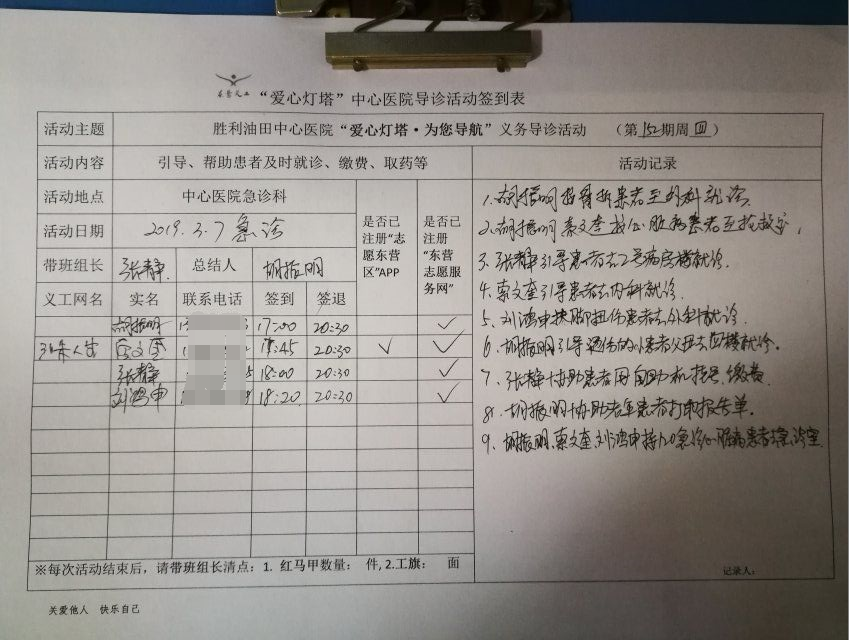 “爱心灯塔”中心医院导诊活动签到表
活动主题 胜利油田中心医院“爱心灯塔·为您导航”义务导诊活动 （第152期周四）
活动内容 引导、帮助患者及时就诊、缴费、取药等 活动记录
活动地点 中心医院急诊科
活动日期 2019.3.7 急诊
带班组长 张静 总结人 胡振明
是否已注册“志愿东营区”APP
是否已注册“东营志愿服务网”
义工网名 实名 联系电话 签到 签退
胡振明 17:00 20:30 ✓
蔡文奎 17:45 20:30 ✓ ✓
张静 18:00 20:30 ✓
刘鸿申 18:20 20:30 ✓
1.胡振明 骨折患者至外科就诊
2.胡振明 蔡文奎 心脏病患者至抢救室.
3.张静引导患者去2号病房楼就诊.
4.蔡文奎引导患者去内科就诊.
5.刘鸿申扶脚扭伤患者去外科就诊.
6.胡振明引导 患者父母去 楼就诊.
7.张静协助患者用自助机挂号、缴费.
8.胡振明协助老年患者打印报告单.
9.胡振明.蔡文奎 刘鸿申 急诊心脏病患者 室.
※每次活动结束后，请带班组长清点：1. 红马甲数量： 件,2.工旗： 面
记录人：
关爱他人 快乐自己